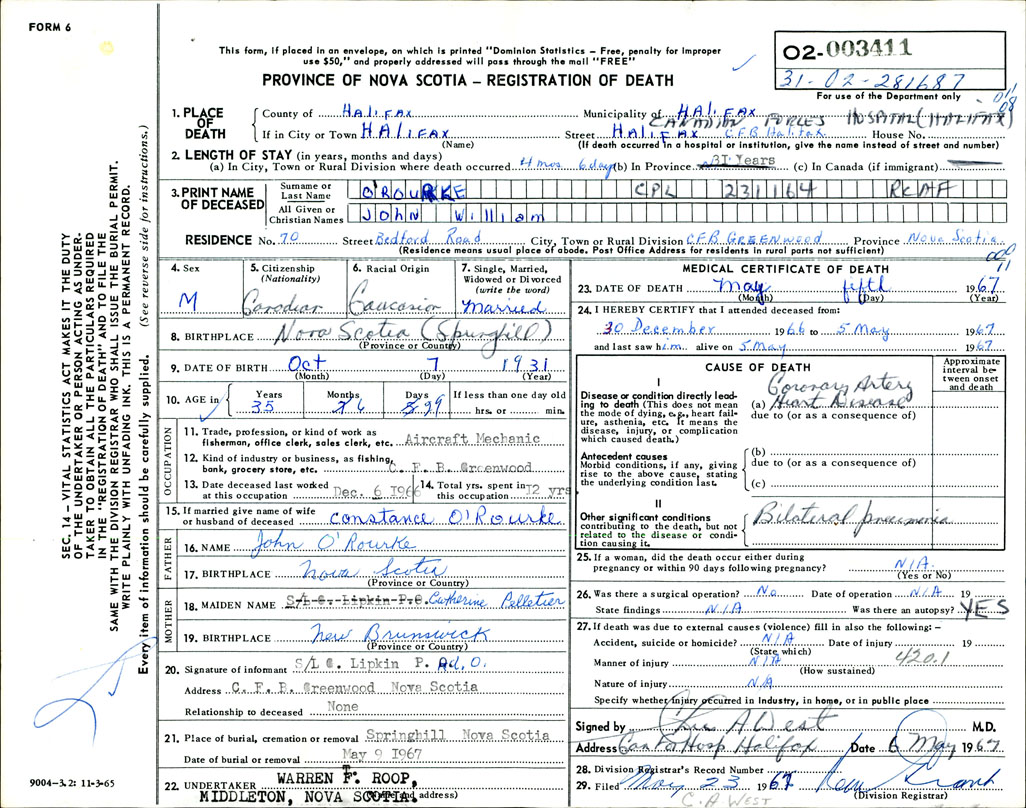 FORM 6
This form, if placed in an envelope, on which is printed "Dominion Statistics – Free, penalty for improper
use $50," and properly addressed will pass through the mail "FREE"
PROVINCE OF NOVA SCOTIA – REGISTRATION OF DEATH
02-003411
31-02-281687
For use of the Department only
SEC. 14 – VITAL STATISTICS ACT MAKES IT THE DUTY
OF THE UNDERTAKER OR PERSON ACTING AS UNDER-
TAKER TO OBTAIN ALL THE PARTICULARS REQUIRED
IN THE "REGISTRATION OF DEATH" AND TO FILE THE
SAME WITH THE DIVISION REGISTRAR WHO SHALL ISSUE THE BURIAL PERMIT.
WRITE PLAINLY WITH UNFADING INK. THIS IS A PERMANENT RECORD.
Every item of information should be carefully supplied. (See reverse side for instructions.)
1. PLACE OF DEATH
County of HALIFAX Municipality of HALIFAX
CANADIAN FORCES HOSPITAL (HALIFAX)
If in City or Town HALIFAX Street HALIFAX C.F.B. Halifax House No.
(Name) (If death occurred in a hospital or institution, give the name instead of street and number)
2. LENGTH OF STAY (in years, months and days)
(a) In City, Town or Rural Division where death occurred 4 mos 6 days (b) In Province 31 Years (c) In Canada (if immigrant)
3. PRINT NAME OF DECEASED
Surname or Last Name O'ROURKE CPL 231164 RCAF
All Given or Christian Names John William
RESIDENCE No. 70 Street Bedford Road City, Town or Rural Division CFB GREENWOOD Province Nova Scotia
(Residence means usual place of abode. Post Office Address for residents in rural parts not sufficient)
4. Sex M
5. Citizenship (Nationality) Canadian
6. Racial Origin Caucasian
7. Single, Married, Widowed or Divorced (write the word) Married
8. BIRTHPLACE Nova Scotia (Springhill)
(Province or Country)
9. DATE OF BIRTH Oct 7 1931
(Month) (Day) (Year)
10. AGE in Years 35 Months 6 Days 29 If less than one day old
hrs. or min.
OCCUPATION
11. Trade, profession, or kind of work as
fisherman, office clerk, sales clerk, etc. Aircraft Mechanic
12. Kind of industry or business, as fishing,
bank, grocery store, etc. C. F. B. Greenwood
13. Date deceased last worked
at this occupation Dec. 6 1966
14. Total yrs. spent in
this occupation 12 yrs
15. If married give name of wife
or husband of deceased Constance O'Rourke
FATHER
16. NAME John O'Rourke
17. BIRTHPLACE Nova Scotia
(Province or Country)
MOTHER
18. MAIDEN NAME S/L C. Lipkin P.O. Catherine Pelletier
19. BIRTHPLACE New Brunswick
(Province or Country)
20. Signature of informant S/L C. Lipkin P. Ad. O.
Address C. F. B. Greenwood Nova Scotia
Relationship to deceased None
21. Place of burial, cremation or removal Springhill Nova Scotia
Date of burial or removal May 9 1967
22. UNDERTAKER WARREN F. ROOP,
MIDDLETON, NOVA SCOTIA.
(Name and address)
9004–3.2: 11-3-65
MEDICAL CERTIFICATE OF DEATH
23. DATE OF DEATH May fifth 1967
(Month) (Day) (Year)
24. I HEREBY CERTIFY that I attended deceased from:
30 December 1966 to 5 May 1967
and last saw him alive on 5 May 1967
CAUSE OF DEATH
Approximate interval between onset and death
I
Disease or condition directly lead-
ing to death (This does not mean
the mode of dying, e.g., heart fail-
ure, asthenia, etc. It means the
disease, injury, or complication
which caused death.)
(a) Coronary Artery Heart Disease
due to (or as a consequence of)
Antecedent causes
Morbid conditions, if any, giving
rise to the above cause, stating
the underlying condition last.
(b)
due to (or as a consequence of)
(c)
II
Other significant conditions
contributing to the death, but not
related to the disease or condi-
tion causing it.
Bilateral pneumonia
25. If a woman, did the death occur either during
pregnancy or within 90 days following pregnancy? N/A
(Yes or No)
26. Was there a surgical operation? No Date of operation N/A 19
State findings N/A Was there an autopsy? YES
27. If death was due to external causes (violence) fill in also the following: –
Accident, suicide or homicide? N/A Date of injury 19
(State which)
420.1
Manner of injury N/A
(How sustained)
Nature of injury N/A
Specify whether injury occurred in industry, in home, or in public place
Signed by A West M.D.
Address Can For Hosp Halifax Date 6 May 1967
28. Division Registrar's Record Number
29. Filed May 23 1967
(Division Registrar)
C. A WEST